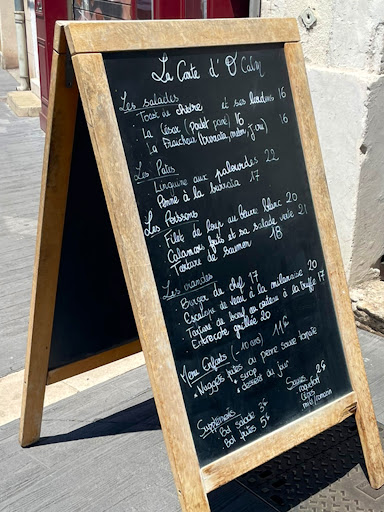 La Carte d'O Calm
Les salades
Toast de chèvre et ses lardons 16
La César (poulet pané) 16
La Fraîcheur (burrata, melon, jcru) 16
Les Pates
Linguine aux palourdes 22
Penne à la burrata 17
Les Poissons
Filet de loup au beurre blanc 20
Calamars frits et sa salade verte 21
Tartare de saumon 18
Les viandes
Burger du chef 17
Escalope de veau à la milanaise 20
Tartare de bœuf au couteau à la truffe 17
Entrecôte grillée 20
Menu Enfants (-10 ans) 11€
Nuggets frites ou penne sauce tomate
sirop desserts du jour
Suppléments
Bol salade 5€
Bol frites 5€
Sauces 2€
roquefort
Cèpes
miel/romarin